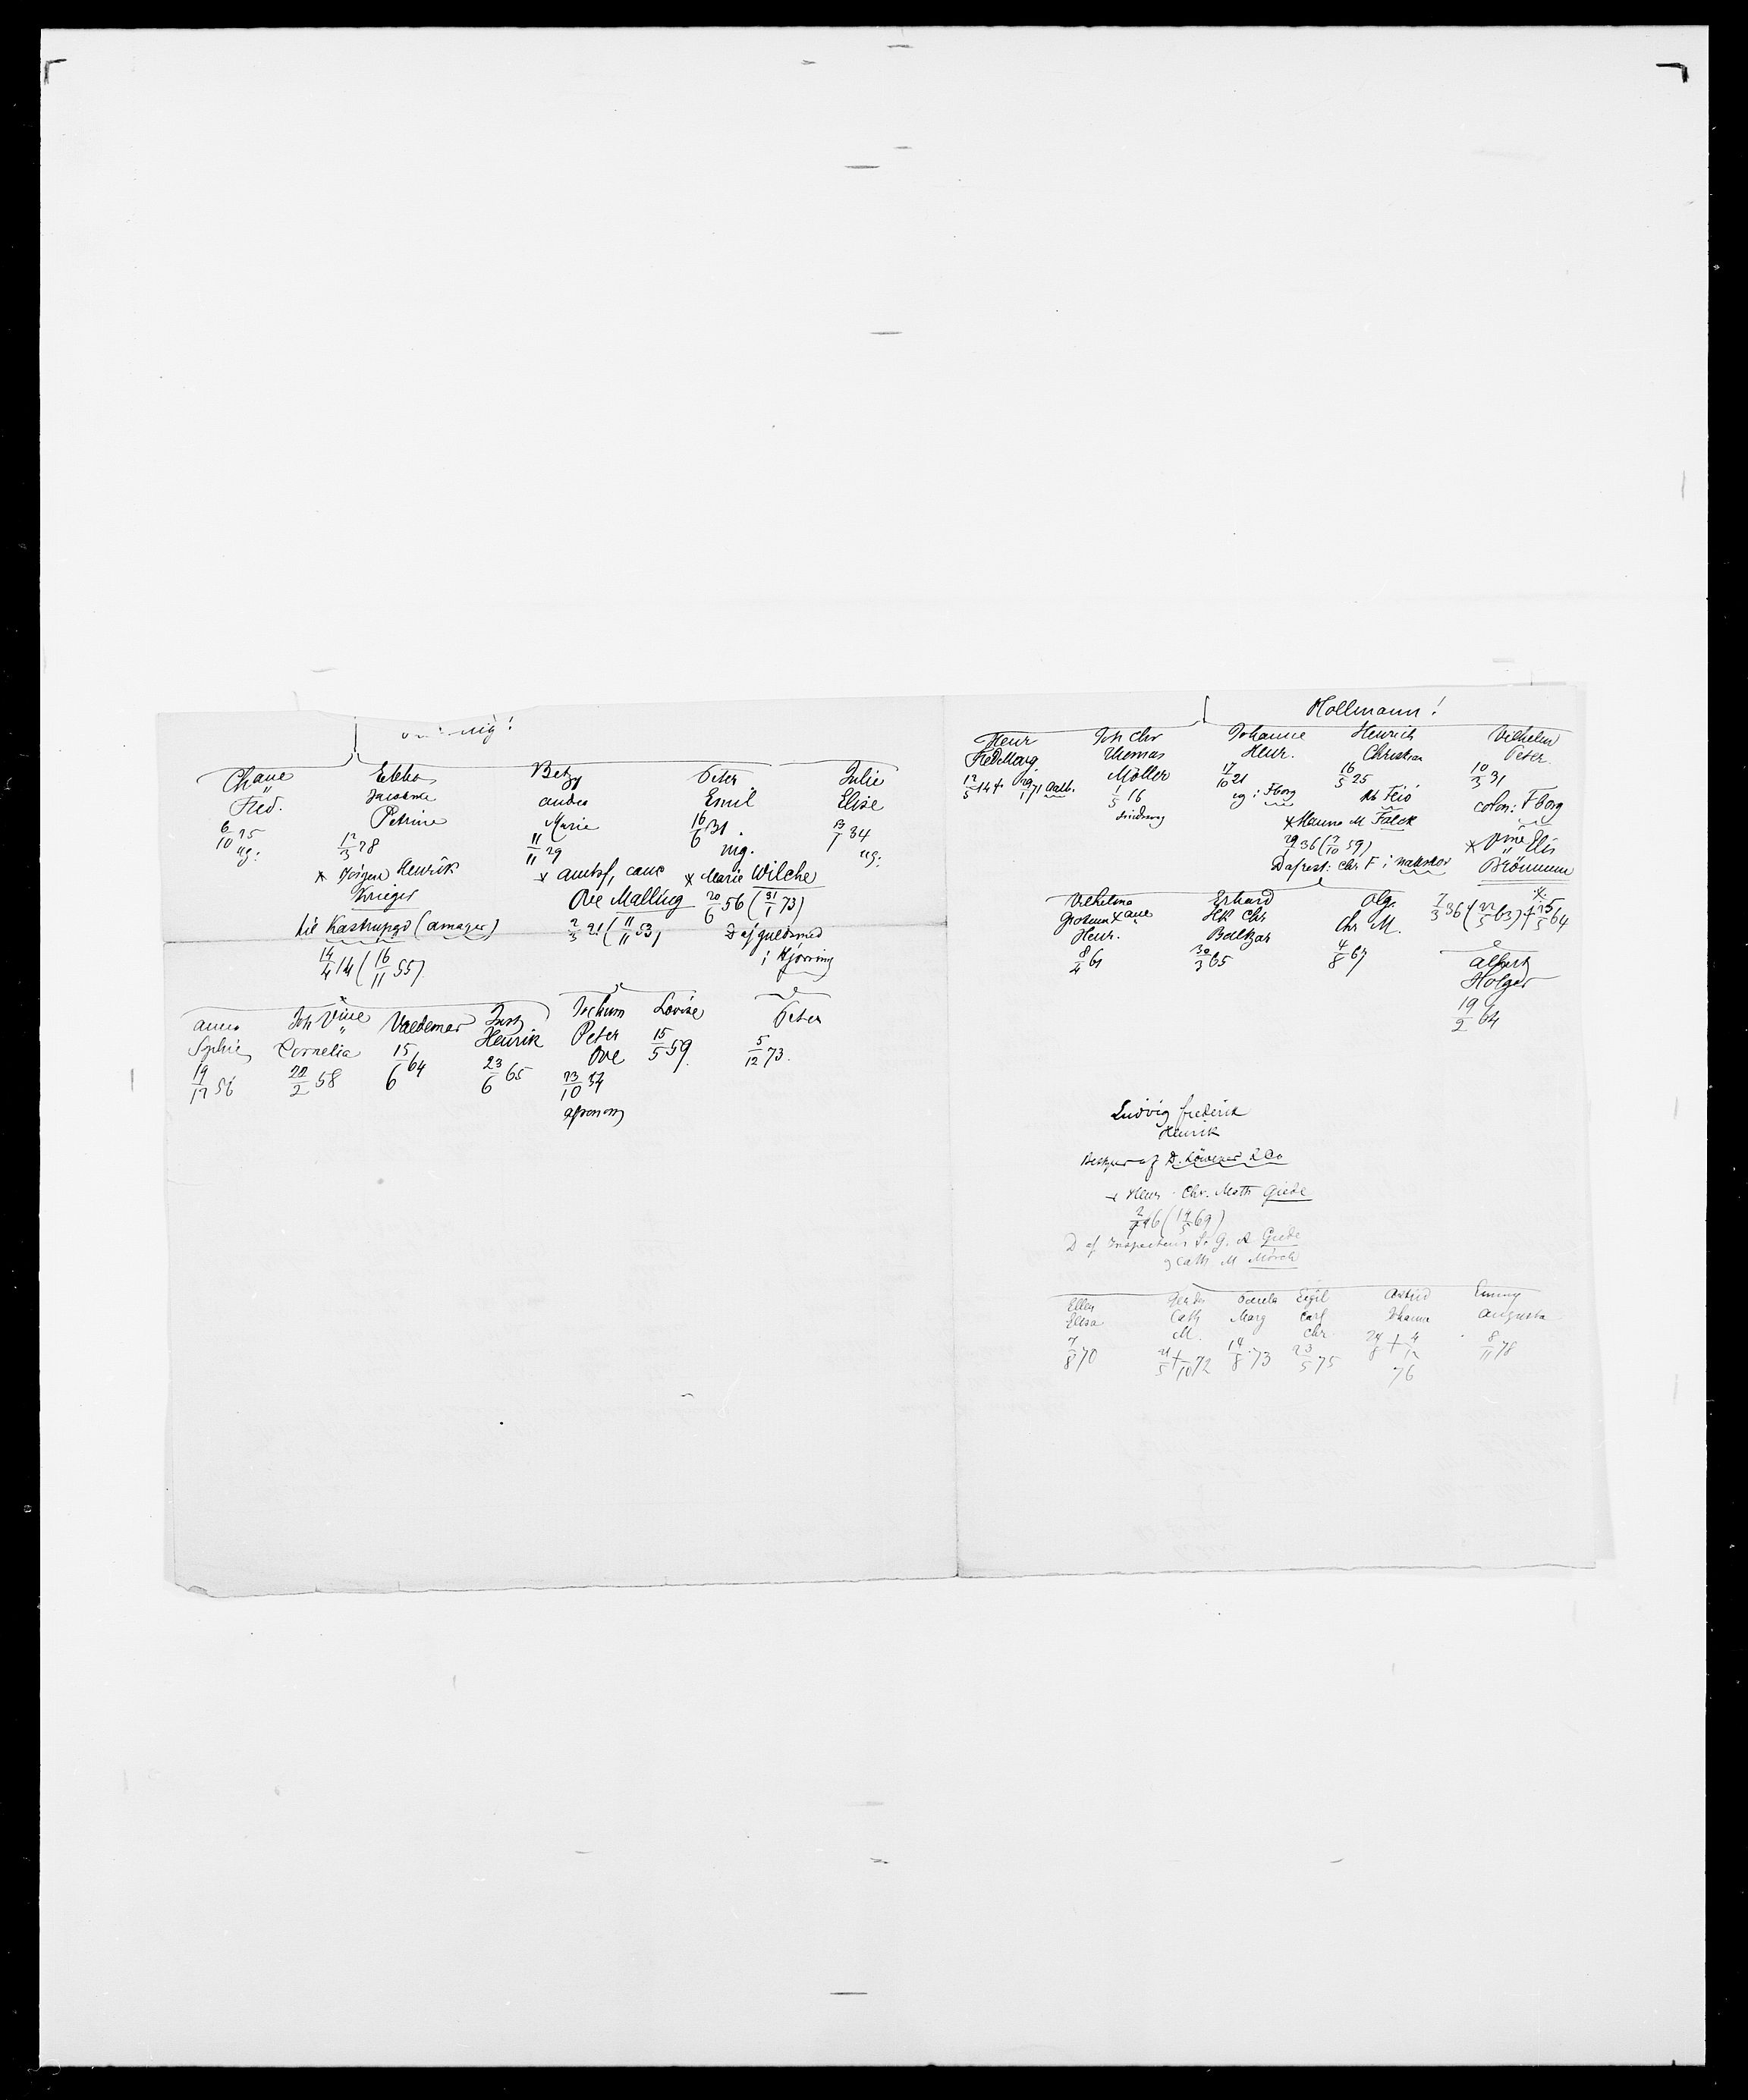 Chane
Fred.
6/10 25
ug:
Ebba
Petrine
12/3 28
* Jörgen Henrik
Krieger
til Kastrupgd (Amager)
14/4 14 (16/11 55)
Betzy
Andrea
Marie
11/11 29
* Amtsf, canc
Ove Malling
2/3 21 (11/11 53)
Peter
Emil
16/6 31.
ing.
* Marie Wilche
20/6 56 (31/1 73)
D af guldsmed
i Hjörring
Julie
Elise
13/7 34
ug:
Anna
Sophie
19/12 56
Joh Vine
Cornelia
22/2 58
Valdemar
15/6 64
Just
Henrik
23/6 65
Jochum
Peter
Ove
23/10 54
agronom
Lovise
15/5 59.
Peter
5/12 73.
Mollmann!
Henr
Fred Marg
12/5 14 + 29/1 71 Aalb.
Joh Chr
Thomas
Möller
1/5 16
Johanne
Henr.
17/10 21
ug: Fborg
Henrich
Christian
16/5 25
Feiö
* Hanna M Falck
29/1 36 (7/10 59)
D af rest: Chr F i Nakskov
Vilhelm
Peter
10/3 31
Fborg
* Vine Elis
Brömmum
7/3 36 (22/5 63) + 25/5 64
Vilhelmine
Henr.
8/4 61
Erhard
HK Chr
Baltzar
30/3 65
Olg.
Chr M.
4/8 67
Albert
Holger
19/2 64
Ludvig Frederik
Henrik
Bestyrer af D. Löwener & Co
* Henr. Chr. Math Giede
46 (14/5 69)
D af Inspecteur Fr. G. A Giede
og Cath M Mörch
Ellen
Elisa
7/8 70
Cath
M.
Marg
14/8 73
Eigil
Carl
Chr
23/5 75
Astrid
Johanne
24/8 + 4/12
76
Emmy
Augusta
8/11 78